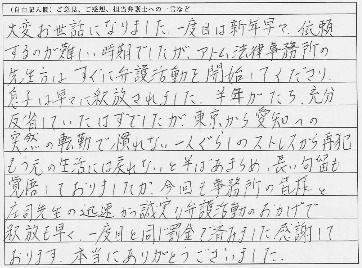 （自由記入欄）ご意見、ご感想、担当弁護士への一言など
大変お世話になりました。一度目は新年早々で、依頼
するのが難しい時期でしたが、アトム法律事務所の
先生方はすぐに弁護活動を開始してくださり、
息子は早々に釈放されました。半年がたち、充分
反省していたはずでしたが東京から愛知への
突然の転勤で慣れない一人ぐらしのストレスから再犯
もう元の生活には戻れない、と半ばあきらめ、長い勾留も
覚悟しておりましたが、今回も事務所の皆様と
庄司先生の迅速かつ誠実な弁護活動のおかげで
釈放も早く、一度目と同じ罰金で済みました。感謝して
おります。本当にありがとうございました。